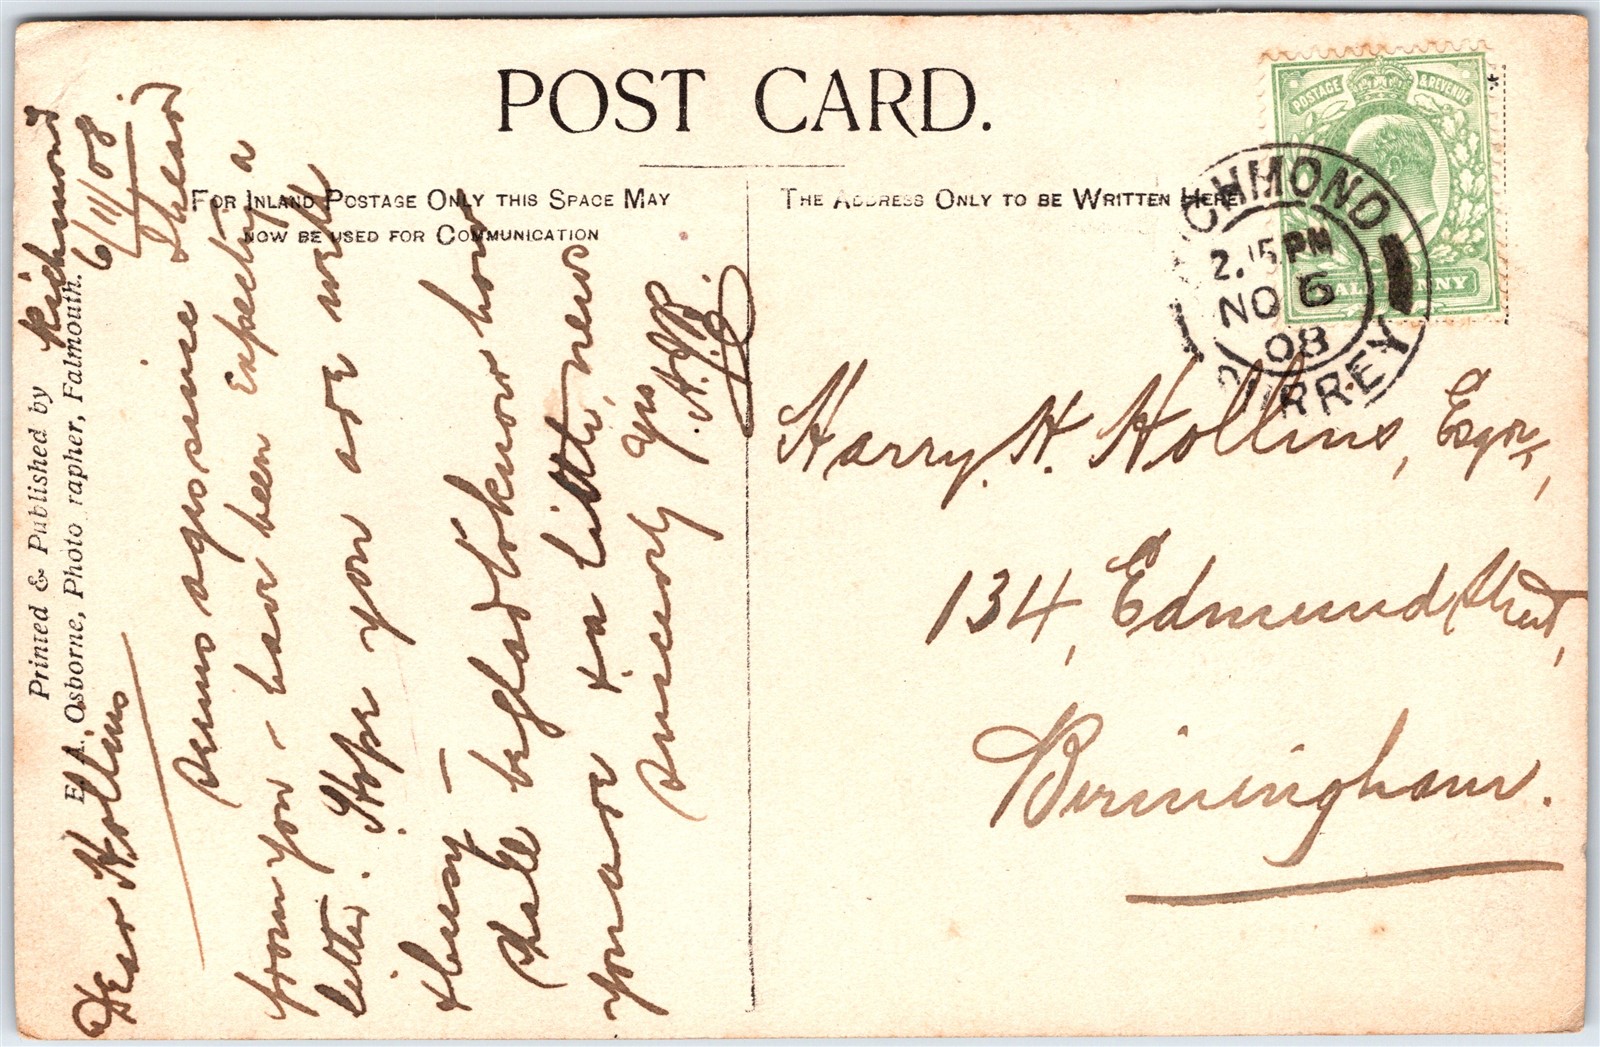 POST CARD.
FOR INLAND POSTAGE ONLY THIS SPACE MAY
NOW BE USED FOR COMMUNICATION
THE ADDRESS ONLY TO BE WRITTEN HERE
Printed & Published by
E. A. Osborne, Photo rapher, Falmouth.
Richmond
6/11/08.
Dear Hollins
Seems ages since I heard
from you – have been expecting a
letter. Hope you are well
& busy –
Shall be glad to know how
you are & a little news
Yrs
Sincerely
Harry. H. Hollins, Esqre,
134, Edmund Street,
Birmingham.
POSTAGE & REVENUE
HALFPENNY
RICHMOND
2.15 PM
NO 6
08
SURREY